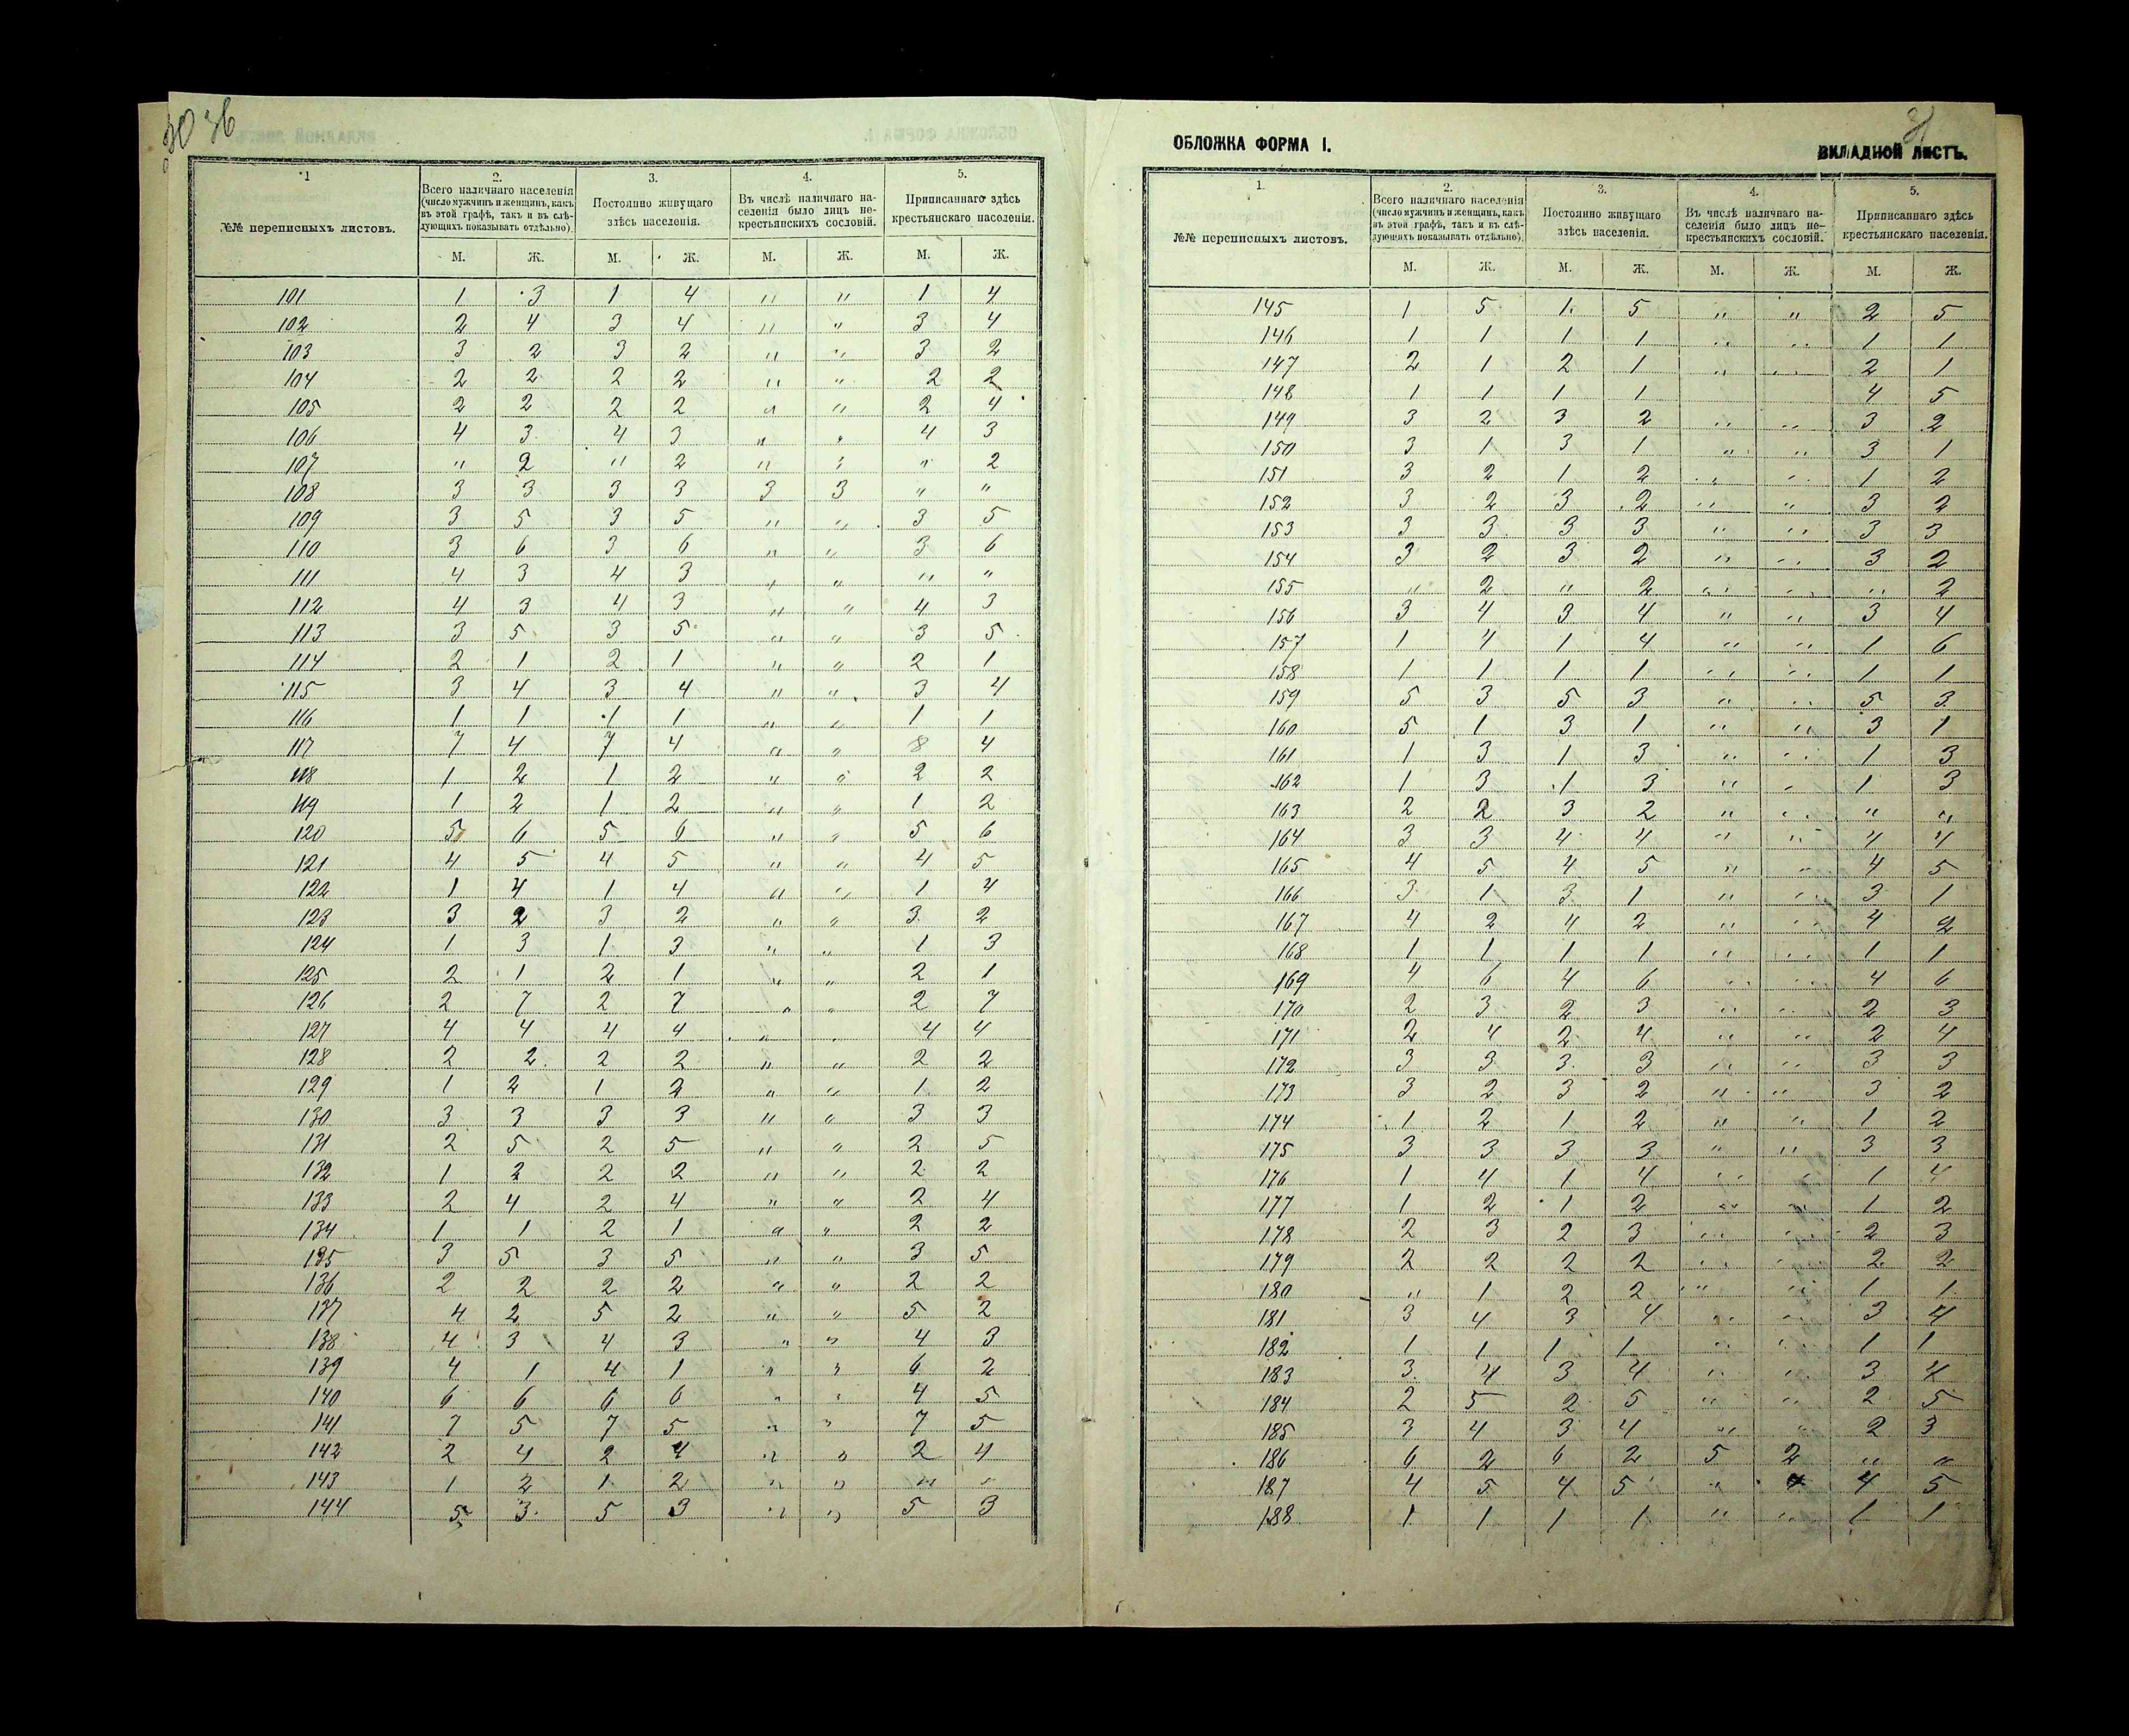 30 36
1
2.
3.
4.
5.
№№ переписныхъ листовъ.
Всего наличнаго населенія (число мужчинъ и женщинъ, какъ въ этой графѣ, такъ и въ слѣдующихъ показывать отдѣльно).
Постоянно живущаго здѣсь населенія.
Въ числѣ наличнаго населенія было лицъ некрестьянскихъ сословій.
Приписаннаго здѣсь крестьянскаго населенія.
М. Ж. М. Ж. М. Ж. М. Ж.
101 1 3 1 4 " " 1 4
102 2 4 3 4 " " 3 4
103 3 2 3 2 " " 3 2
104 2 2 2 2 " " 2 2
105 2 2 2 2 " " 2 4
106 4 3 4 3 " " 4 3
107 " 2 " 2 " " " 2
108 3 3 3 3 3 3 " "
109 3 5 3 5 " " 3 5
110 3 6 3 6 " " 3 6
111 4 3 4 3 " " " "
112 4 3 4 3 " " 4 3
113 3 5 3 5 " " 3 5
114 2 1 2 1 " " 2 1
115 3 4 3 4 " " 3 4
116 1 1 1 1 " " 1 1
117 7 4 7 4 " " 8 4
118 1 2 1 2 " " 2 2
119 1 2 1 2 " " 1 2
120 5 6 5 6 " " 5 6
121 4 5 4 5 " " 4 5
122 1 4 1 4 " " 1 4
123 3 2 3 2 " " 3 2
124 1 3 1 3 " " 1 3
125 2 1 2 1 " " 2 1
126 2 7 2 7 " " 2 7
127 4 4 4 4 " " 4 4
128 2 2 2 2 " " 2 2
129 1 2 1 2 " " 1 2
130 3 3 3 3 " " 3 3
131 2 5 2 5 " " 2 5
132 1 2 2 2 " " 2 2
133 2 4 2 4 " " 2 4
134 1 1 2 1 " " 2 2
135 3 5 3 5 " " 3 5
136 2 2 2 2 " " 2 2
137 4 2 5 2 " " 5 2
138 4 3 4 3 " " 4 3
139 4 1 4 1 " " 6 2
140 6 6 6 6 " " 4 5
141 7 5 7 5 " " 7 5
142 2 4 2 4 " " 2 4
143 1 2 1 2 " " " "
144 5 3 5 3 " " 5 3
ОБЛОЖКА ФОРМА I.
31
ВКЛАДНОЙ ЛИСТЪ.
1.
2.
3.
4.
5.
№№ переписныхъ листовъ.
Всего наличнаго населенія (число мужчинъ и женщинъ, какъ въ этой графѣ, такъ и въ слѣдующихъ показывать отдѣльно).
Постоянно живущаго здѣсь населенія.
Въ числѣ наличнаго населенія было лицъ некрестьянскихъ сословій.
Приписаннаго здѣсь крестьянскаго населенія.
М. Ж. М. Ж. М. Ж. М. Ж.
145 1 5 1 5 " " 2 5
146 1 1 1 1 " " 1 1
147 2 1 2 1 " " 2 1
148 1 1 1 1 4 5
149 3 2 3 2 " " 3 2
150 3 1 3 1 " " 3 1
151 3 2 1 2 " " 1 2
152 3 2 3 2 " " 3 2
153 3 3 3 3 " " 3 3
154 3 2 3 2 " " 3 2
155 " 2 " 2 " " " 2
156 3 4 3 4 " " 3 4
157 1 4 1 4 " " 1 6
158 1 1 1 1 " " 1 1
159 5 3 5 3 " " 5 3
160 5 1 3 1 " " 3 1
161 1 3 1 3 " " 1 3
162 1 3 1 3 " " 1 3
163 2 2 3 2 " " " "
164 3 3 4 4 " " 4 4
165 4 5 4 5 " " 4 5
166 3 1 3 1 " " 3 1
167 4 2 4 2 " " 4 2
168 1 1 1 1 " " 1 1
169 4 6 4 6 " " 4 6
170 2 3 2 3 " " 2 3
171 2 4 2 4 " " 2 4
172 3 3 3 3 " " 3 3
173 3 2 3 2 " " 3 2
174 1 2 1 2 " " 1 2
175 3 3 3 3 " " 3 3
176 1 4 1 4 " " 1 4
177 1 2 1 2 " " 1 2
178 2 3 2 3 " " 2 3
179 2 2 2 2 " " 2 2
180 " 1 2 2 " " 1 1
181 3 4 3 4 " " 3 4
182 1 1 1 1 " " 1 1
183 3 4 3 4 " " 3 4
184 2 5 2 5 " " 2 5
185 3 4 3 4 " " 2 3
186 6 2 6 2 5 2 " "
187 4 5 4 5 " 4 5
188 1 1 1 1 " " 1 1